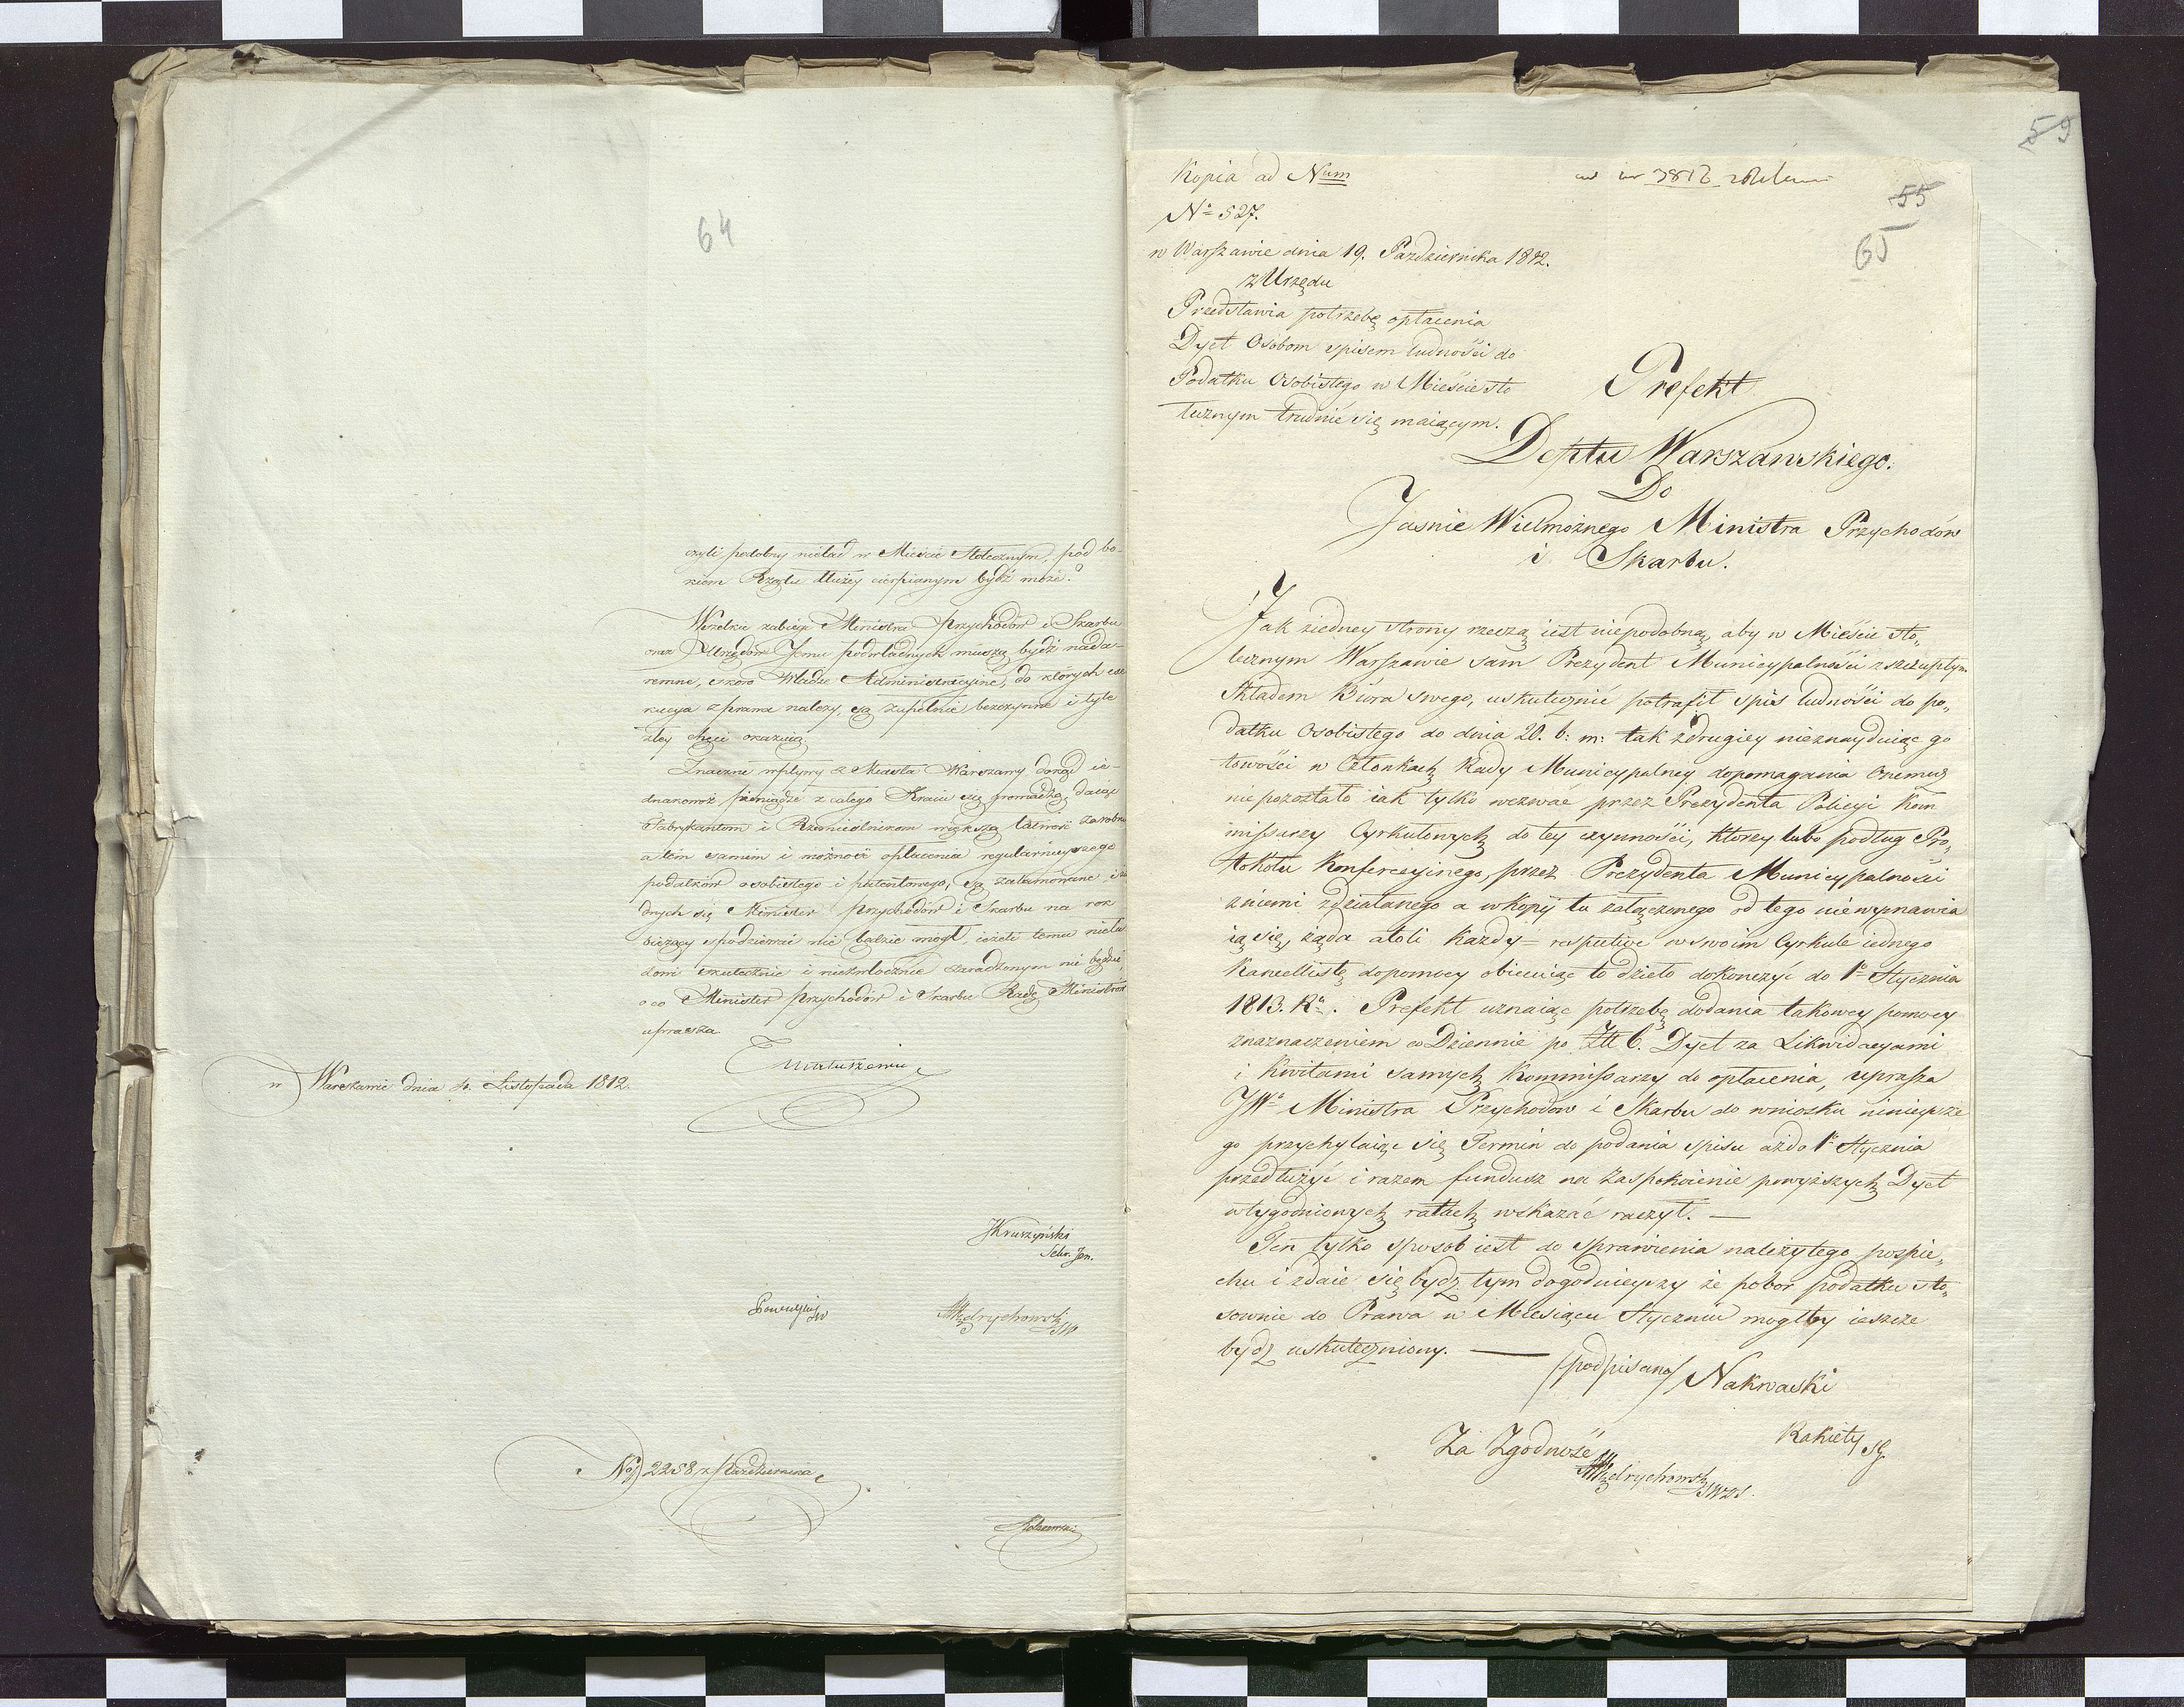 64
czyli podobny nieład w Mieście Stołecznym, pod bo-
kiem Rządu dłużey cierpianym bydź może?
Wszelkie zabiegi Ministra Przychodów i Skarbu
oraz Urzędów Jemu podwładnych muszą bydź nada-
remne, skoro Władze Administracyine, do których exe
kucya z prawa należy, są zupełnie bezczynne i tyle
złey chęci okazuią.
Znaczne wpływy z Miasta Warszawy dokąd ie-
dnakowoż pieniądze z całego Kraiu się gromadzą, daiąc
Fabrykantom i Rzemieślnikom większą łatwość zarobku
a tém samém i możność opłacenia regularnieyszego
podatków osobistego i patentowego, są zatamowane i ża
dnych się Minister Przychodów i Skarbu na rok
bieżący spodziewać nie będzie mógł, ieżeli temu nieła
dowi skutecznie i niezwłocznie zaradzonym nie będzie,
o co Minister Przychodów i Skarbu Radę Ministrów
uprasza.
Matuszewic
w Warszawie dnia 4. Listopada 1812.
JKruszyński
Sekr. Jen.
Mędrychowski
No 2258 z Października
59
Kopia ad Num
No 527.
55
65
w Warszawie dnia 19. Października 1812.
z Urzędu
Przedstawia potrzebę opłacenia
Dyet Osobom spisem ludności do
Podatku Osobistego w Mieście sto
łecznym trudnić się maiącym.
Prefekt
Deptu Warszawskiego.
Do
Jaśnie Wielmożnego Ministra Przychodów
i Skarbu.
Jak ziedney strony rzeczą iest niepodobną, aby w Mieście sto„
łecznym Warszawie sam Prezydent Municypalności z szczupłym
składem Biura swego, uskutecznić potrafił spis ludności do po„
datku Osobistego do dnia 20. b: m: tak zdrugiey nieznayduiąc go
towości w Członkach Rady Municypalney dopomagania Onemuż
nie pozostało iak tylko wezwać przez Prezydenta Policyi Kom
missarzy Cyrkułowych do tey czynności, którzy lubo podług Pro„
tokółu Konferencyinego, przez Prezydenta Municypalności
zniemi zdziałanego a w kopij tu załączonego od tego nie wymawia
ią się, żąda atoli każdy respective w swoim Cyrkule iednego
Kancellistę do pomocy obiecuiąc to dzieło dokończyć do 1o Stycznia
1813. Ra. Prefekt uznaiąc potrzebę dodania takowey pomocy
z naznaczeniem co Dziennie po Złł 6. Dyet za Likwidacyami
i Kwitami samych Kommissarzy do opłacenia, uprasza
JWo Ministra Przychodów i Skarbu do wniosku ninieysze
go przychylaiąc się Termin do podania spisu aż do 1o Stycznia
przedłużyć i razem fundusz na zaspokoienie powyższych Dyet
w tygodniowych ratach wskazać raczył. —
Ten tylko sposób iest do sprawienia należytego pospie„
chu i zdaie się bydz tym dogodnieyszy że pobór podatku sto„
sownie do Prawa w Miesiącu Styczniu mogłby ieszcze
bydz uskuteczniony. —
(podpisano) Nakwaski
Rakiety SJ
Za Zgodność
Mędrychowski